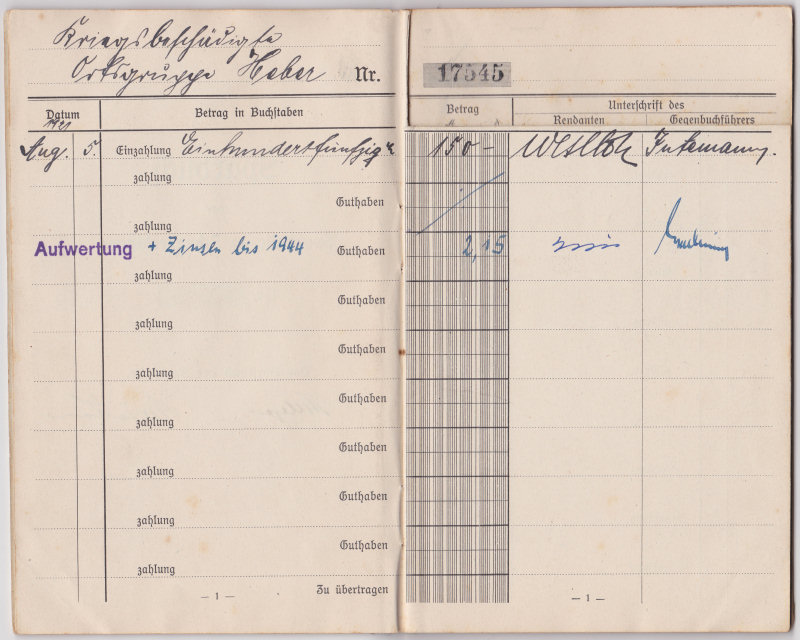 Kriegsbeschädigte
Ortsgruppe Heber Nr. 17545
Datum Betrag in Buchstaben Betrag Unterschrift des
Rendanten Gegenbuchführers
1921
Aug. 5. Einzahlung Einhundertfünfzig 150 –
zahlung
Guthaben
zahlung
Aufwertung + Zinsen bis 1944 Guthaben 2,15
zahlung
Guthaben
zahlung
Guthaben
zahlung
Guthaben
zahlung
Guthaben
zahlung
Guthaben
zahlung
Guthaben
zahlung
Zu übertragen
– 1 – – 1 –